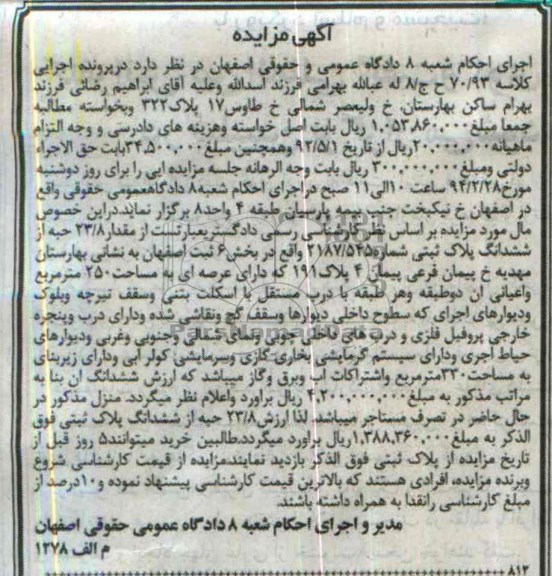 آگهی مزایده
اجرای احکام شعبه ۸ دادگاه عمومی و حقوقی اصفهان در نظر دارد درپرونده اجرایی
کلاسه ۷۰/۹۳ ح ج/۸ له عبالله بهرامی فرزند اسدالله وعلیه آقای ابراهیم رضائی فرزند
بهرام ساکن بهارستان. خ ولیعصر شمالی خ طاوس۱۷ پلاک۳۲۲ وبخواسته مطالبه
جمعا مبلغ۱،۰۵۳،۸۶۰،۰۰۰ ریال بابت اصل خواسته وهزینه های دادرسی و وجه التزام
ماهیانه۲۰،۰۰۰،۰۰۰ریال از تاریخ ۹۲/۵/۱ وهمچنین مبلغ۳۴،۵۰۰،۰۰۰بابت حق الاجراء
دولتی ومبلغ۳۰۰،۰۰۰ ریال بابت وجه الرهانه جلسه مزایده ایی را برای روز دوشنبه
مورخ۹۴/۲/۲۸ ساعت ۱۰الی۱۱ صبح دراجرای احکام شعبه۸ دادگاهعمومی حقوقی واقع
در اصفهان خ نیکبخت جنب بیمه پارسیان طبقه ۴ واحد۸ برگزار نماید.دراین خصوص
مال مورد مزایده بر اساس نظر کارشناسی رسمی دادگستریعبارتست از مقدار۲۳/۸ حبه از
ششدانگ پلاک ثبتی شماره۲۱۸۷/۵۴۵ واقع در بخش۶ ثبت اصفهان به نشانی بهارستان
مهدیه خ پیمان فرعی پیمان ۴ پلاک۱۹۱ که دارای عرصه ای به مساحت۲۵۰ مترمربع
واعیانی ان دوطبقه وهر طبقه با درب مستقل با اسکلت بتنی وسقف تیرچه وبلوک
ودیوارهای اجرای که سطوح داخلی دیوارها وسقف گچ ونقاشی شده ودارای درب وپنجره
خارجی پروفیل فلزی و درب های داخلی چوبی ونمای شمالی وجنوبی وغربی ودیوارهای
حیاط اجری ودارای سیستم گرمایشی بخاری گازی وسرمایشی کولر آبی ودارای زیربنای
به مساحت۳۳۰مترمربع واشتراکات اب وبرق وگاز میباشد که ارزش ششدانگ ان بنا به
مراتب مذکور به مبلغ۴،۲۰۰،۰۰۰،۰۰۰ ریال براورد واعلام نظر میگردد. منزل مذکور در
حال حاضر در تصرف مستاجر میباشد. لذا ارزش۲۳/۸ حبه از ششدانگ پلاک ثبتی فوق
الذکر به مبلغ۱،۳۸۸،۳۶۰،۰۰۰ریال براورد میگردد.طالبین خرید میتوانند۵ روز قبل از
تاریخ مزایده از پلاک ثبتی فوق الذکر بازدید نمایند.مزایده از قیمت کارشناسی شروع
وبرنده مزایده، افرادی هستند که بالاترین قیمت کارشناسی پیشنهاد نموده و۱۰درصد از
مبلغ کارشناسی رانقدا به همراه داشته باشند.
مدیر و اجرای احکام شعبه ۸ دادگاه عمومی حقوقی اصفهان
م الف ۱۲۷۸
۸۱۲
ParsNamadData